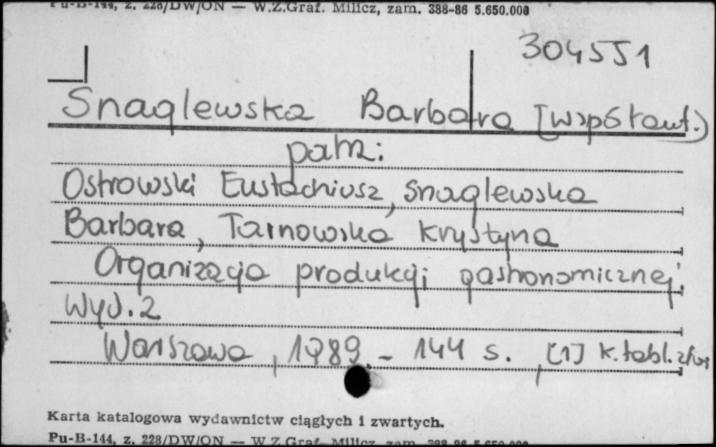 Pu-B-144, z. 228/DW/ON — W.Z.Graf. Milicz, zam. 388-86 5.650.000
304551
Snaglewska Barbara [współaut.)
patrz:
Ostrowski Eustachiusz, Snaglewska
Barbara, Tarnowska Krystyna
Organizacja produkcji gastronomicznej.
Wyd. 2
Warszawa, 1989. – 144 s., [1] k. tabl.
Karta katalogowa wydawnictw ciągłych i zwartych.
Pu-B-144, z. 228/DW/ON — W.Z.Graf. Milicz, zam. 388-86 5.650.000